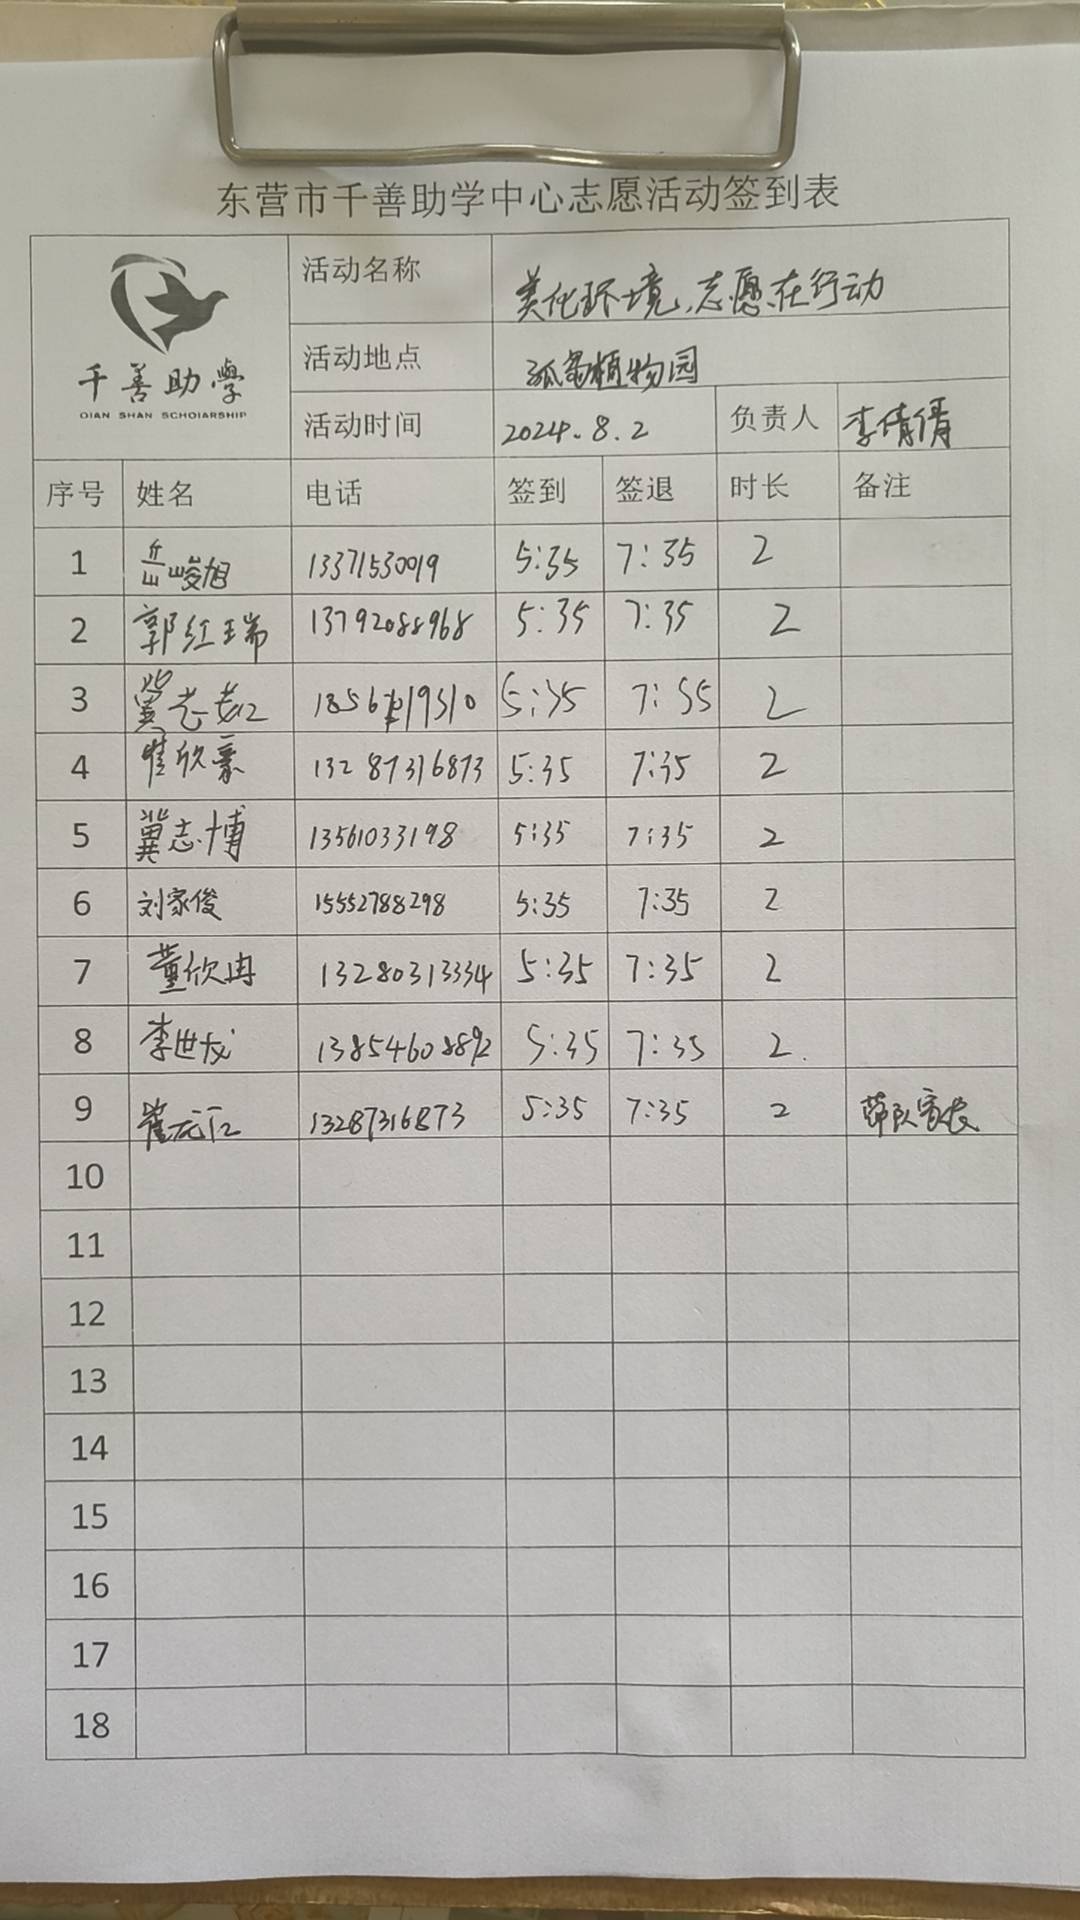 东营市千善助学中心志愿活动签到表
千善助學
QIAN SHAN SCHOIARSHIP
活动名称 美化环境、志愿在行动
活动地点 孤岛植物园
活动时间 2024.8.2 负责人 李倩倩
序号 姓名 电话 签到 签退 时长 备注
1 岳峻旭 13371530019 5:35 7:35 2
2 郭红瑞 13792088968 5:35 7:35 2
3 冀志 5:35 7:35 2
4 崔欣豪 13287316873 5:35 7:35 2
5 冀志博 13561033198 5:35 7:35 2
6 刘家俊 15552788298 5:35 7:35 2
7 董欣冉 13280313334 5:35 7:35 2
8 李世龙 13854608892 5:35 7:35 2.
9 崔元江 13287316873 5:35 7:35 2 带队家长
10
11
12
13
14
15
16
17
18